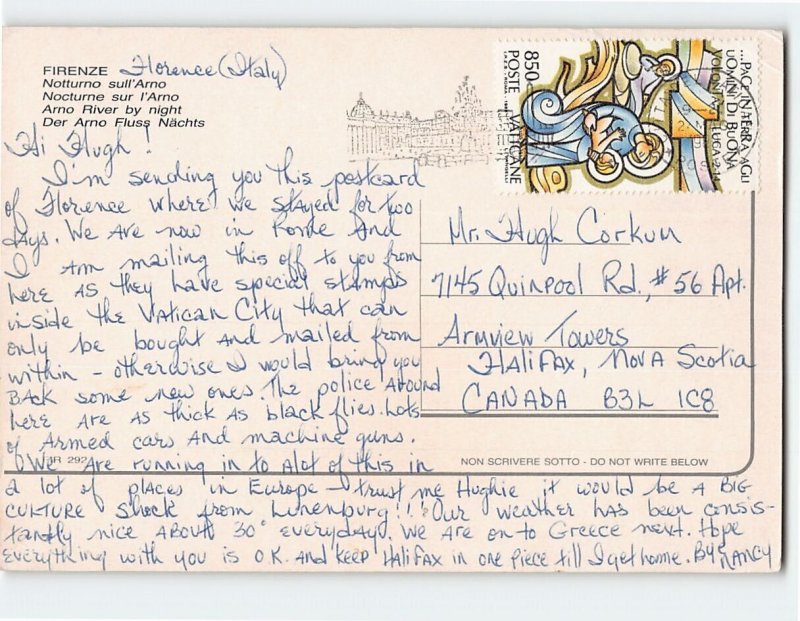 FIRENZE Florence (Italy)
Notturno sull'Arno
Nocturne sur l'Arno
Arno River by night
Der Arno Fluss Nächts
850
POSTE VATICANE
...PACE IN TERRA AGLI
UOMINI DI BUONA
VOLONTÀ LUCA 2-14
Hi Hugh!
I'm sending you this postcard
of Florence where we stayed for two
days. We are now in Rome and
I am mailing this off to you from
here as they have special stamps
inside the Vatican City that can
only be bought and mailed from
within - otherwise I would bring you
back some new ones. The police around
here are as thick as black flies. Lots
of armed cars and machine guns.
We are running in to alot of this in
a lot of places in Europe - trust me Hughie it would be a BIG
CULTURE Shock from Lunenburg!! Our weather has been consis-
tantly nice about 30° everyday. We are on to Greece next. Hope
everything with you is O.K. and keep Halifax in one piece till I get home. Bye NANCY
Mr. Hugh Corkum
7145 Quinpool Rd., #56 Apt.
Armview Towers
Halifax, Nova Scotia
CANADA B3L 1C8
NON SCRIVERE SOTTO - DO NOT WRITE BELOW